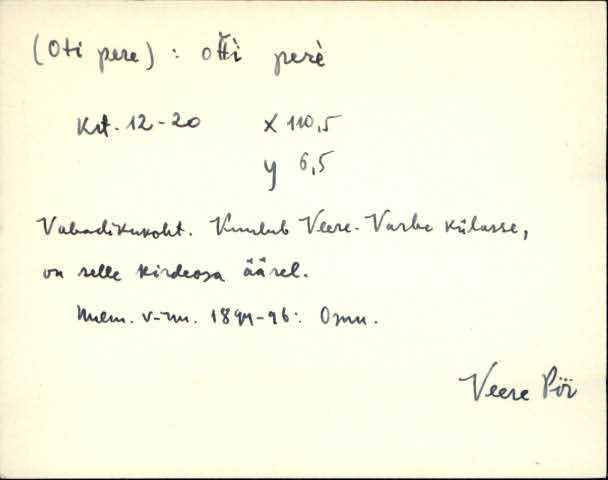 (Oti pere) : oťťi perè
Krt. 12-20 x 110,5
y 6,5
Vabadikukoht. Kuulub Veere-Varbe külasse,
on selle kirdeosa äärel.
v-nn. 1894-96:
Veere Pöi